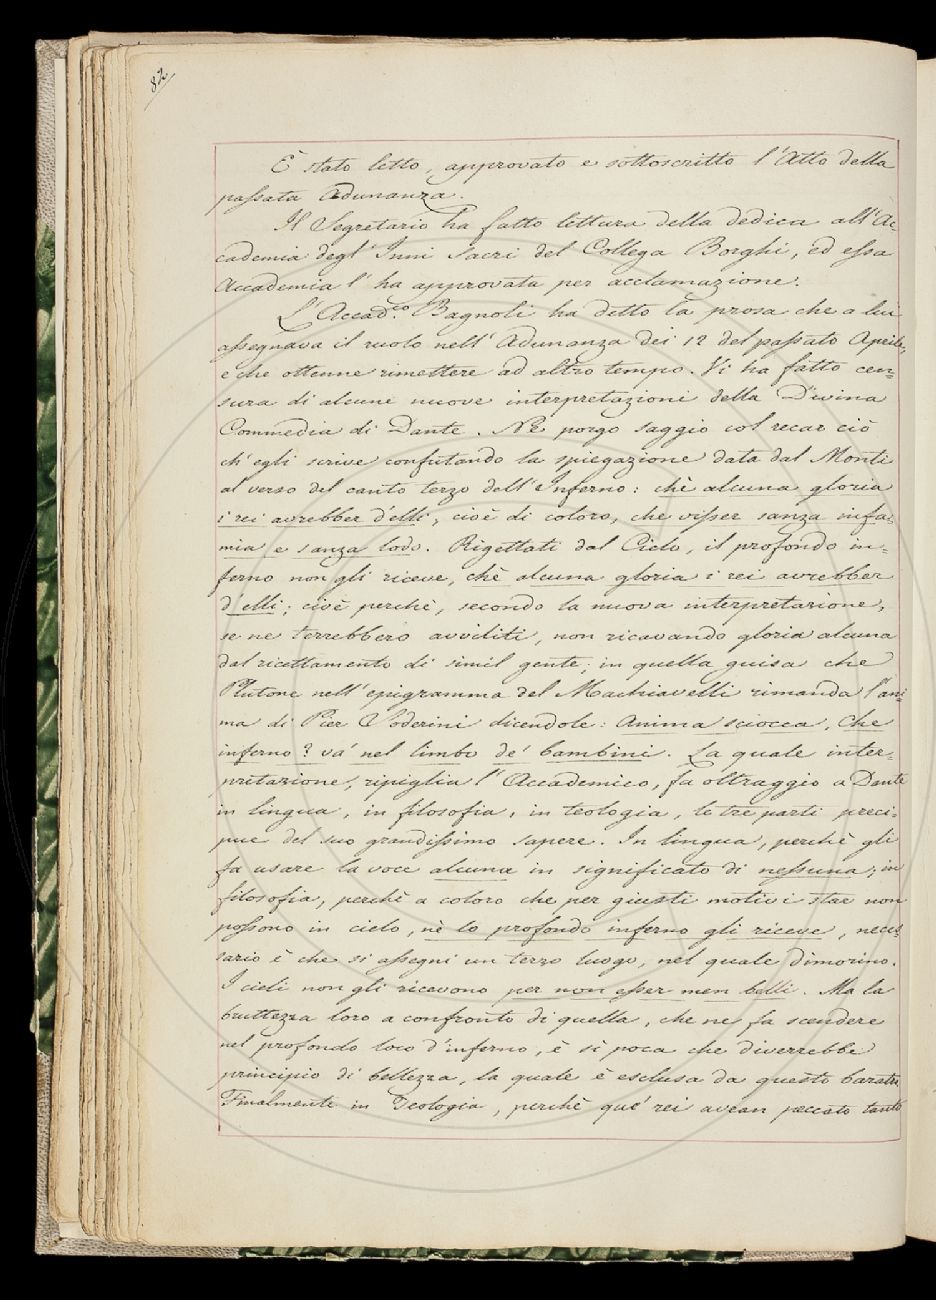 82.
È stato letto, approvato e sottoscritto l'Atto della
passata Adunanza.
Il Segretario ha fatto lettura della dedica all'Ac-
cademia degl'Inni Sacri del Collega Borghi, ed essa
Accademia l'ha approvata per acclamazione.
L'Accad.co Bagnoli ha detto la prosa che a lui
assegnava il ruolo nell'Adunanza dei 12 del passato Aprile,
e che ottenne rimettere ad altro tempo. Vi ha fatto cen=
sura di alcune nuove interpretazioni della Divina
Commedia di Dante. Ne porgo saggio col recar ciò
ch'egli scrive confutando la spiegazione data dal Monti
al verso del canto terzo dell'Inferno: chè alcuna gloria
i rei avrebber d'elli; cioè di coloro, che visser sanza infa-
mia e sanza lodo. Rigettati dal Cielo, il profondo in=
ferno non gli riceve, chè alcuna gloria i rei avrebber
d'elli; cioè perchè, secondo la nuova interpretazione,
se ne terrebbero avviliti, non ricavando gloria alcuna
dal ricettamento di simil gente; in quella guisa che
Plutone nell'epigramma del Machiavelli rimanda l'ani=
ma di Pier Soderini dicendole: Anima sciocca, che
inferno? va' nel limbo de' bambini. La quale inter=
pretazione, ripiglia l'Accademico, fa oltraggio a Dante
in lingua, in filosofia, in teologia, le tre parti preci=
pue del suo grandissimo sapere. In lingua, perchè gli
fa usare la voce alcuna in significato di nessuna; in
filosofia, perchè a coloro che per giusti motivi star non
possono in cielo, nè lo profondo inferno gli riceve, neces=
sario è che si assegni un terzo luogo, nel quale dimorino.
I cieli non gli ricevono per non esser men belli. Ma la
bruttezza loro a confronto di quella, che ne fa scendere
nel profondo loco d'inferno, è sì poca che diverrebbe
principio di bellezza, la quale è esclusa da questo baratro
Finalmente in Teologia, perchè que' rei avean peccato tanto